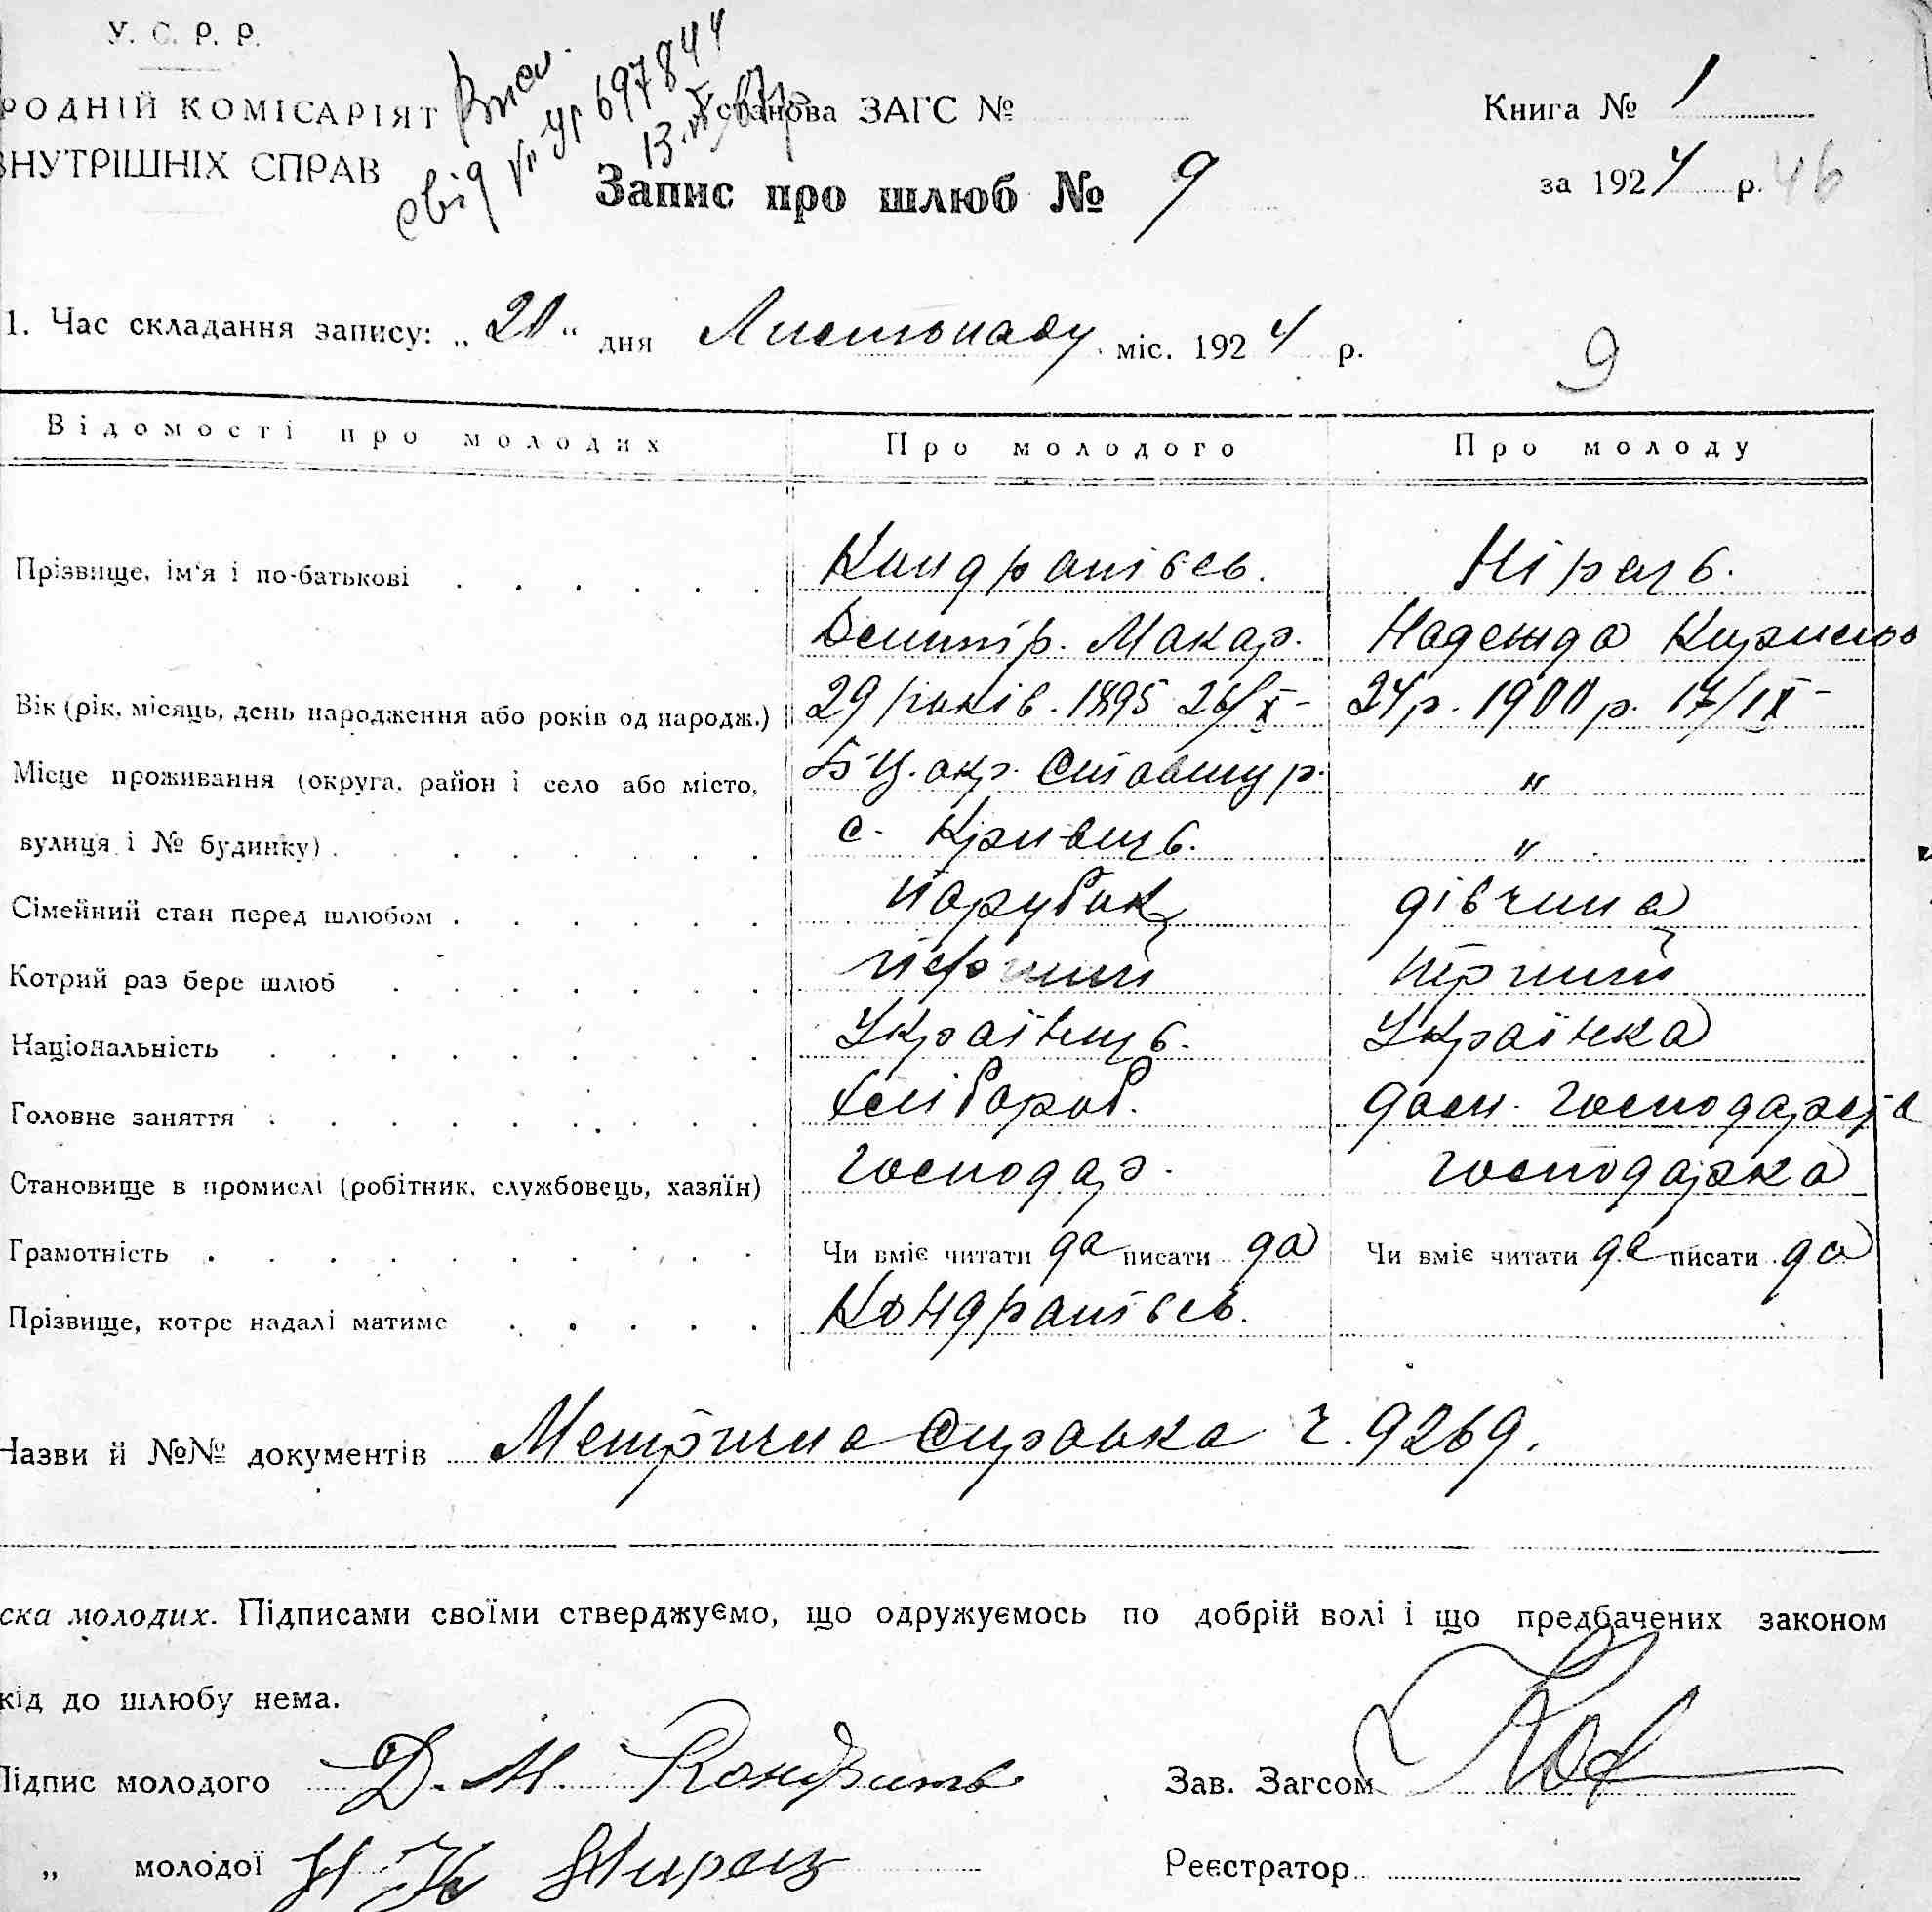 У. С. Р. Р.
РОДНІЙ КОМІСАРІЯТ
ВНУТРІШНІХ СПРАВ
свід 697844
13.
Установа ЗАГС №
Книга № 1
за 1924 р. 46
Запис про шлюб № 9
1. Час складання запису: „21“ дня Листопаду міс. 1924 р.
9
Відомості про молодих Про молодого Про молоду
Прізвище, ім'я і по-батькові Кондратівсь. Нірець.
Дмитр. Макар. Надежда Кирилов
Вік (рік, місяць, день народження або років од народж.) 29 років. 1895 26/X- 24 р. 1900 р. 17/IX-
Місце проживання (округа, район і село або місто, Б Ц. окр. Ставищ р. "
вулиця і № будинку) с. Кривець. "
Сімейний стан перед шлюбом парубок дівчина
Котрий раз бере шлюб перший перший
Національність Українець. Українка
Головне заняття хлібороб. дом. господарст
Становище в промислі (робітник, службовець, хазяїн) господар. господарка
Грамотність Чи вміє читати да писати да Чи вміє читати да писати да
Прізвище, котре надалі матиме Кондратівсь.
Назви й №№ документів Метрична Справка ч. 9269.
ска молодих. Підписами своїми стверджуємо, що одружуємось по добрій волі і що предбачених законом
кід до шлюбу нема.
Підпис молодого Д. М.
Зав. Загсом
„ молодої Н К Нирец
Реєстратор